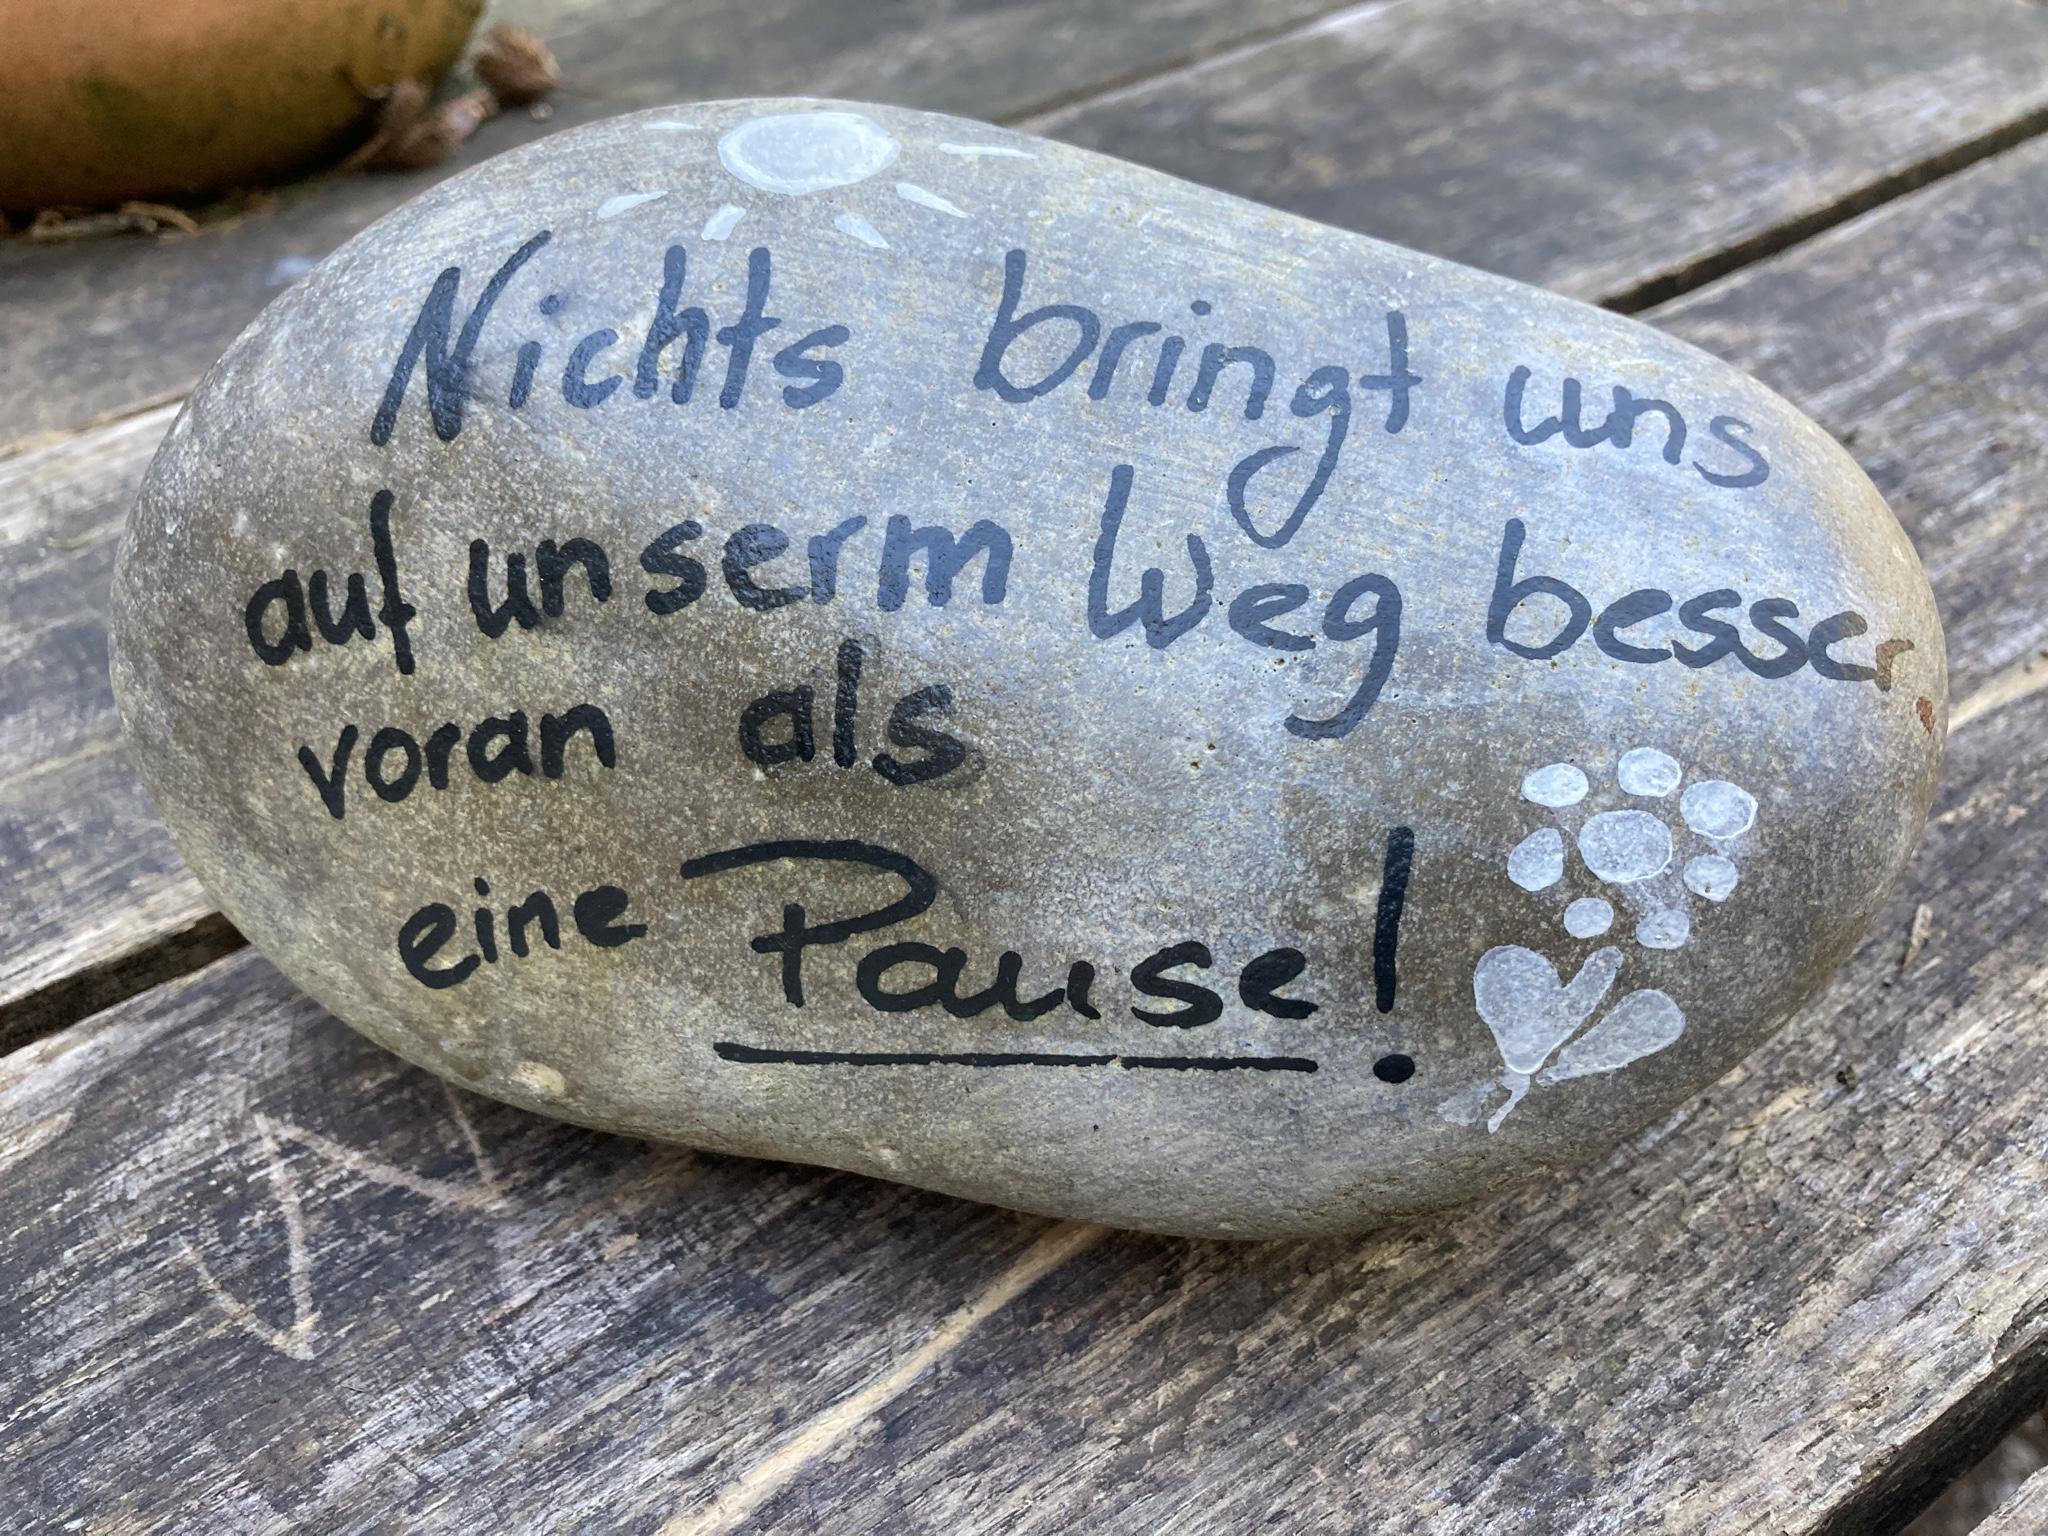 Nichts bringt uns
auf unserm Weg besser
voran als
eine Pause!